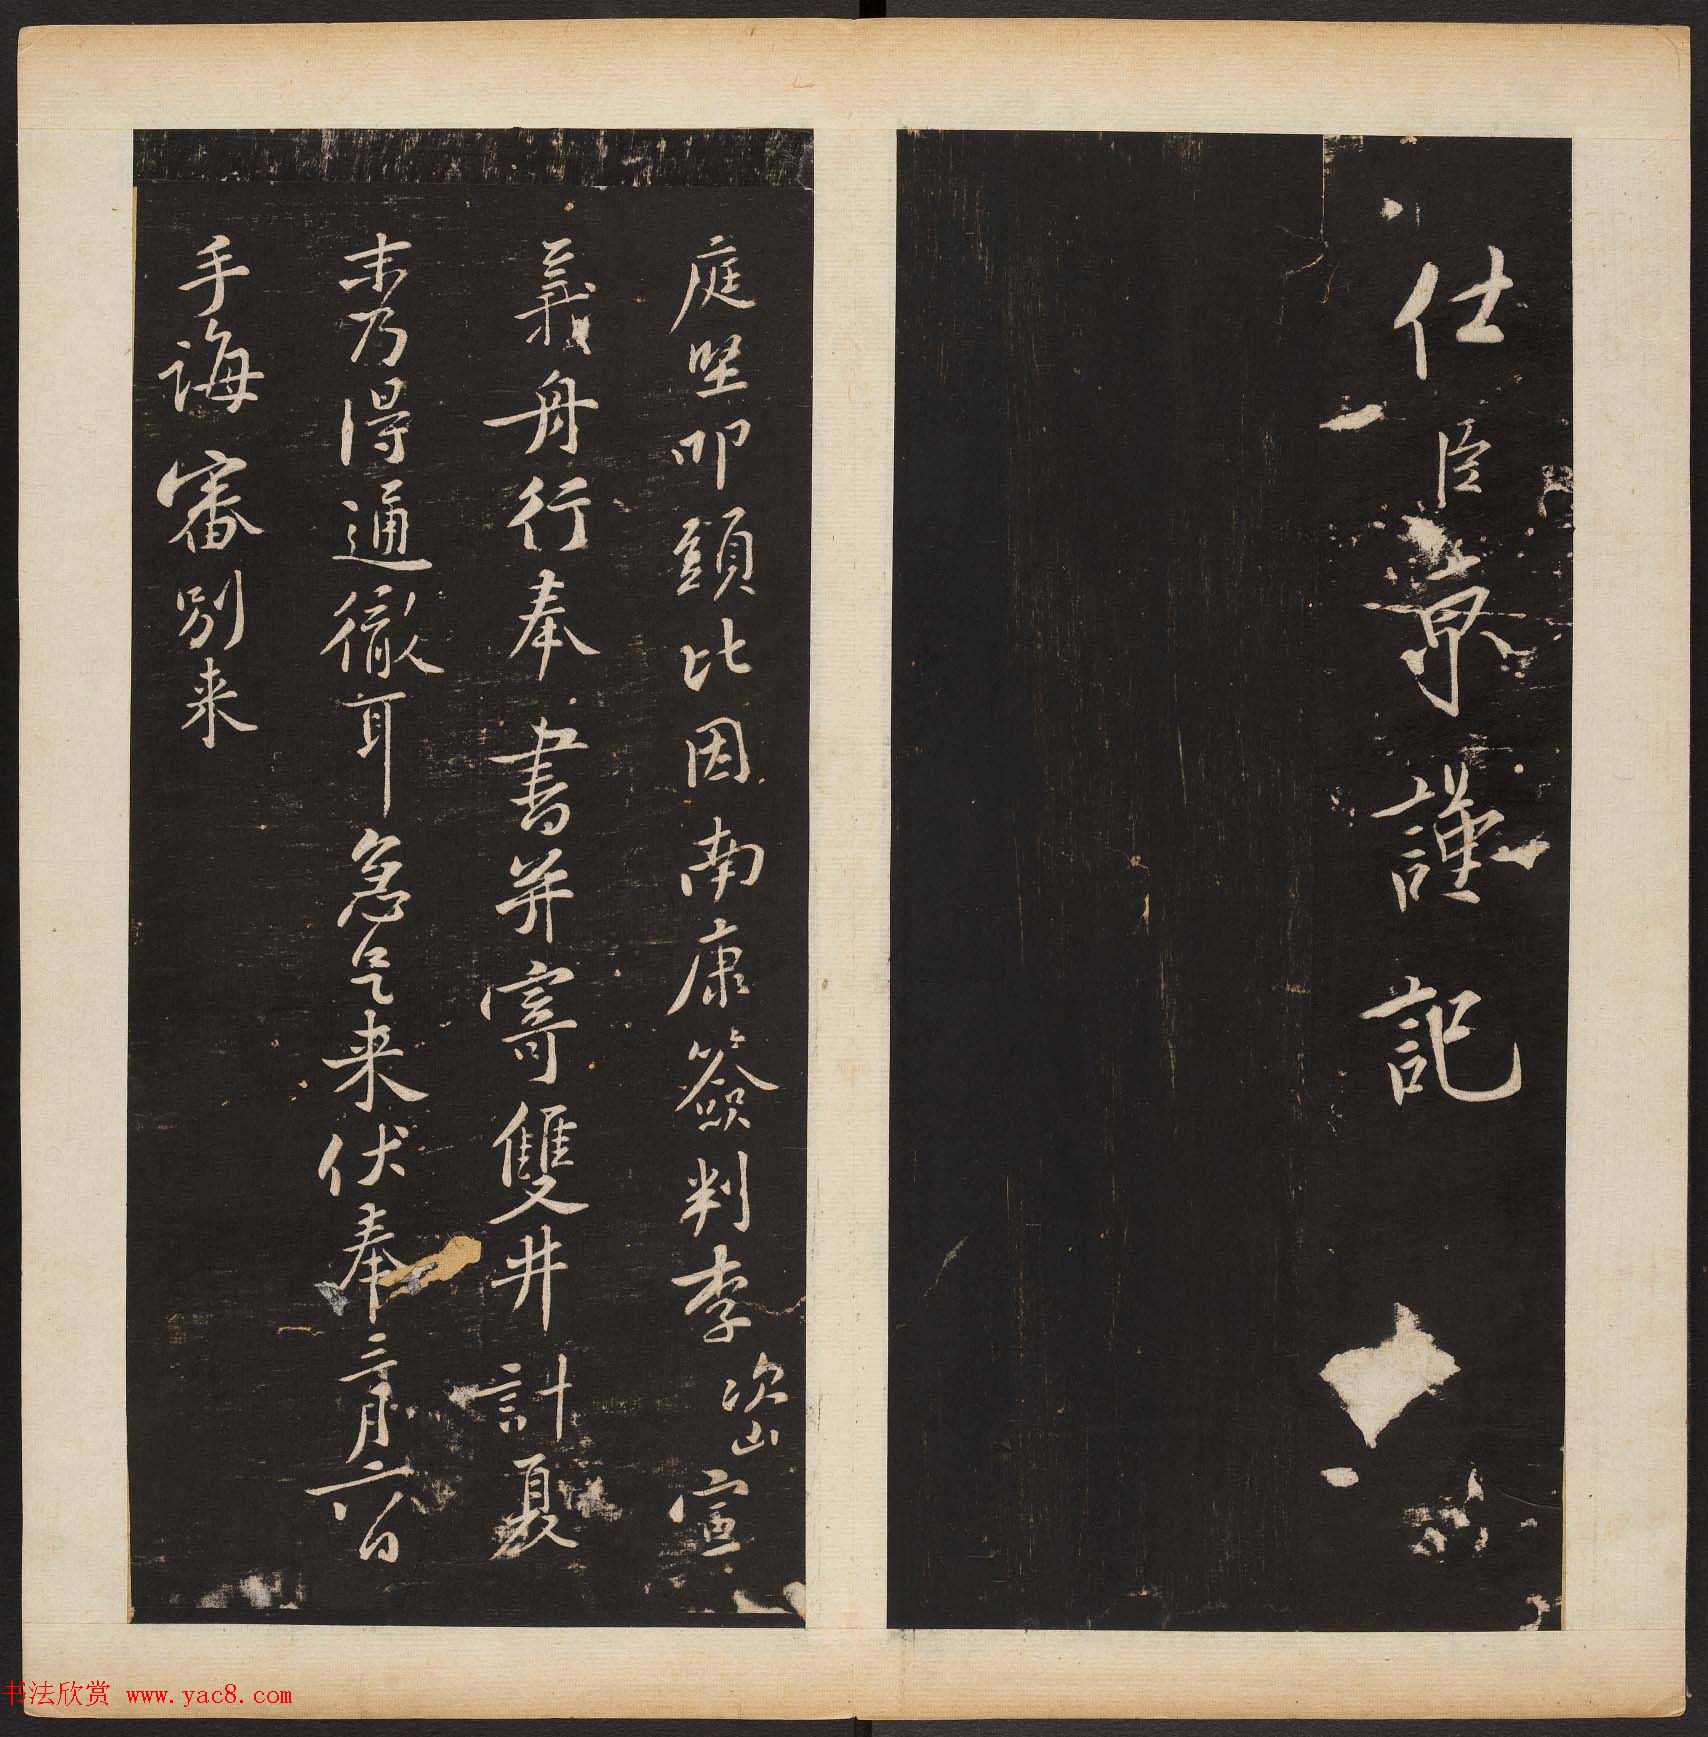 仕臣京謹記
庭堅叩頭比因南康簽判李次山宣
義舟行奉書并寄雙井計夏
末乃得通徹耳急足来伏奉三月六日
手誨審別来
书法欣赏 www.yac8.com